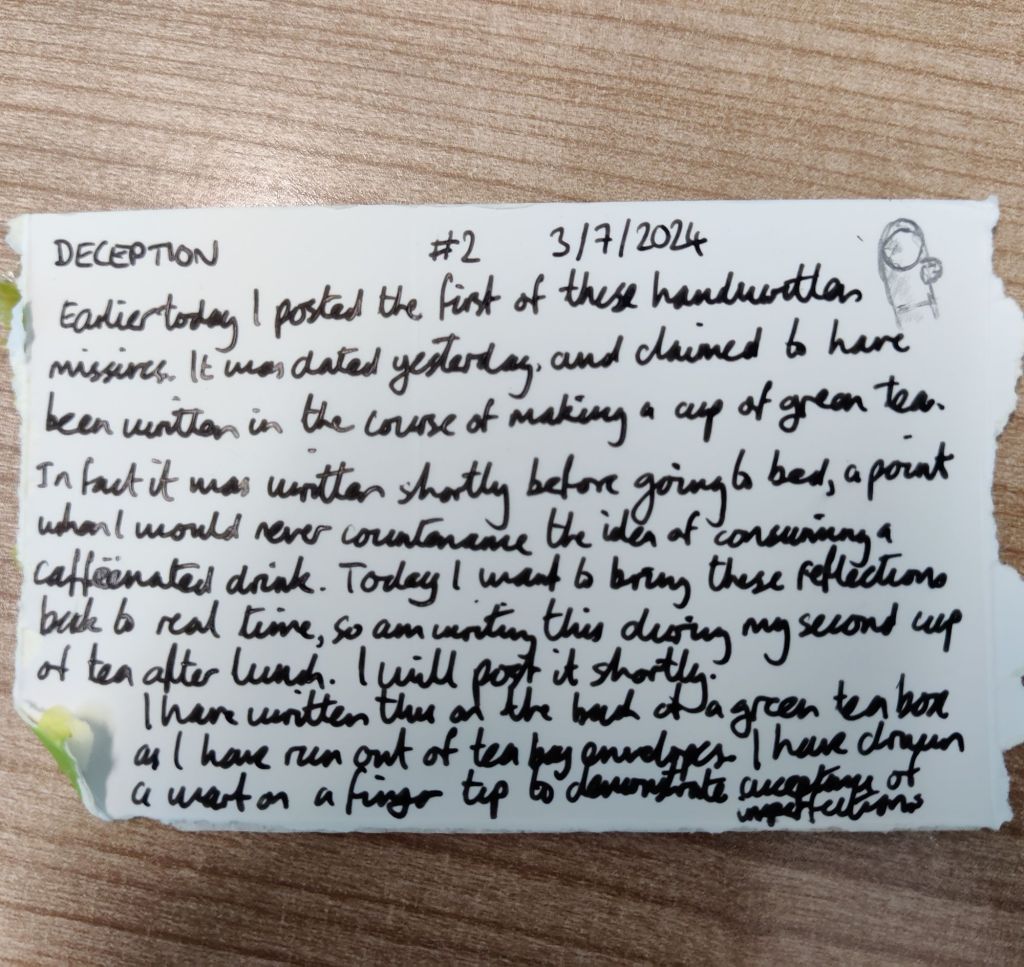 DECEPTION #2 3/7/2024
Earlier today I posted the first of these handwritten
missives. It was dated yesterday, and claimed to have
been written in the course of making a cup of green tea.
In fact it was written shortly before going to bed, a point
when I would never countenance the idea of consuming a
caffeeinated drink. Today I want to bring these reflections
back to real time, so am writing this during my second cup
of tea after lunch. I will post it shortly.
I have written this on the back of a green tea box
as I have run out of tea bag envelopes. I have drawn
a wart on a finger tip to demonstrate acceptance of
imperfections